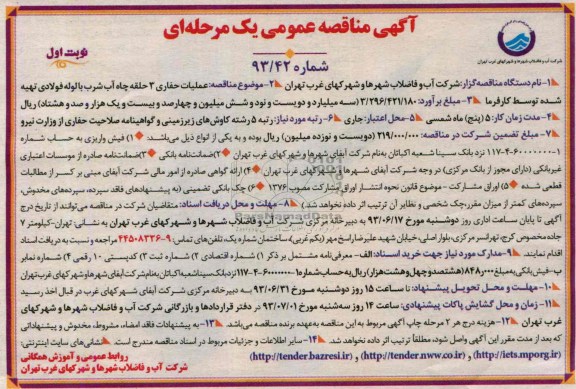 آگهی مناقصه عمومی یک مرحله‌ای
شماره ۹۳/۴۲
نوبت اول
شرکت آب و فاضلاب شهرها و شهرکهای غرب تهران
۱-نام دستگاه مناقصه‌گزار: شرکت آب و فاضلاب شهرها و شهرکهای غرب تهران ۲-موضوع مناقصه: عملیات حفاری ۳ حلقه چاه آب شرب با لوله فولادی تهیه
شده توسط کارفرما ۳- مبلغ برآورد: ۳/۲۹۶/۴۲۱/۱۸۰ (سه میلیارد و دویست و نود و شش میلیون و چهارصد و بیست و یک هزار و صد و هشتاد) ریال
۴-مدت زمان کار: ۵ (پنج) ماه شمسی ۵-محل اعتبار: جاری ۶- رتبه مورد نیاز: رتبه ۵ رشته کاوش‌های زیرزمینی و گواهینامه صلاحیت حفاری از وزارت نیرو
۷- مبلغ تضمین شرکت در مناقصه: ۲۱۹/۰۰۰/۰۰۰ (دویست و نوزده میلیون) ریال بوده و به یکی از انواع ذیل می‌باشد: ۱) فیش واریزی به حساب شماره
۱۱۷-۴-۶۰۰۰۰۰۰-۱ نزد بانک سینا شعبه اکباتان به‌نام شرکت آبفای شهرها و شهرکهای غرب تهران ۲) ضمانتنامه بانکی ۳) ضمانتنامه صادره از موسسات اعتباری
غیربانکی (دارای مجوز از بانک مرکزی) در وجه شرکت آبفای شهرها و شهرکهای غرب تهران ۴) ارائه گواهی صادره از امور مالی شرکت آبفای مبنی بر کسر از مطالبات
قطعی شده ۵) اوراق مشارکت - موضوع قانون نحوه انتشار اوراق مشارکت مصوب ۱۳۷۶ ۶) چک بانکی تضمینی (به پیشنهادهای فاقد سپرده، سپرده‌های مخدوش،
سپرده‌های کمتر از میزان مقرر، چک شخصی و نظایر آن ترتیب اثر داده نخواهد شد.) ۸- مهلت و محل دریافت اسناد: متقاضیان شرکت در مناقصه می‌توانند از تاریخ درج
آگهی تا پایان ساعت اداری روز دوشنبه مورخ ۹۳/۰۶/۱۷ به دبیرخانه مرکزی شرکت آب و فاضلاب شهرها و شهرکهای غرب تهران به نشانی: تهران-کیلومتر ۷
جاده مخصوص کرج، تهرانسر مرکزی، بلوار اصلی، خیابان شهید علیرضا راسخ مهر (یکم غربی)، ساختمان شماره یک، تلفن‌های تماس ۹-۴۴۵۰۸۳۳۶ مراجعه و نسبت به دریافت اسناد
اقدام نمایند. ۹-مدارک مورد نیاز جهت خرید اسناد: الف - معرفی‌نامه مشتمل بر ذکر ۱) شماره اقتصادی ۲) شماره ثبت ۳) کدپستی ۱۰ رقمی ۴) شماره نمابر
ب-فیش بانکی به مبلغ ۸۴۸/۰۰۰ (هشتصد و چهل و هشت هزار) ریال به حساب شماره ۱-۶۰۰۰۰۰۰-۴-۱۱۷ نزد بانک سینا شعبه اکباتان به نام شرکت آبفای شهرها و شهرکهای غرب تهران
۱۰-مهلت و محل تحویل پیشنهاد: تا ساعت ۱۵ روز دوشنبه مورخ ۹۳/۰۶/۳۱ به دبیرخانه مرکزی شرکت آبفای شهرکهای غرب در قبال اخذ رسید
۱۱-زمان و محل گشایش پاکات پیشنهادی: ساعت ۱۴ روز سه‌شنبه مورخ ۹۳/۰۷/۰۱ در دفتر قراردادها و بازرگانی شرکت آب و فاضلاب شهرها و شهرکهای
غرب تهران ۱۲-هزینه درج هر ۲ مرحله چاپ آگهی مربوط به این مناقصه به‌عهده برنده مناقصه می‌باشد. ۱۳-به پیشنهادات فاقد امضاء، مشروط، مخدوش و پیشنهاداتی
که بعد از مدت مقرر این آگهی واصل شود، مطلقاً ترتیب اثر داده نخواهد شد. ۱۴-سایر اطلاعات و جزئیات مربوط در اسناد مناقصه مندرج است. نشانی‌های سایت اینترنتی:
(http://iets.mporg.ir) و (http://tender.nww.co.ir) و (http://tender.bazresi.ir)
روابط عمومی و آموزش همگانی
شرکت آب و فاضلاب شهرها و شهرکهای غرب تهران